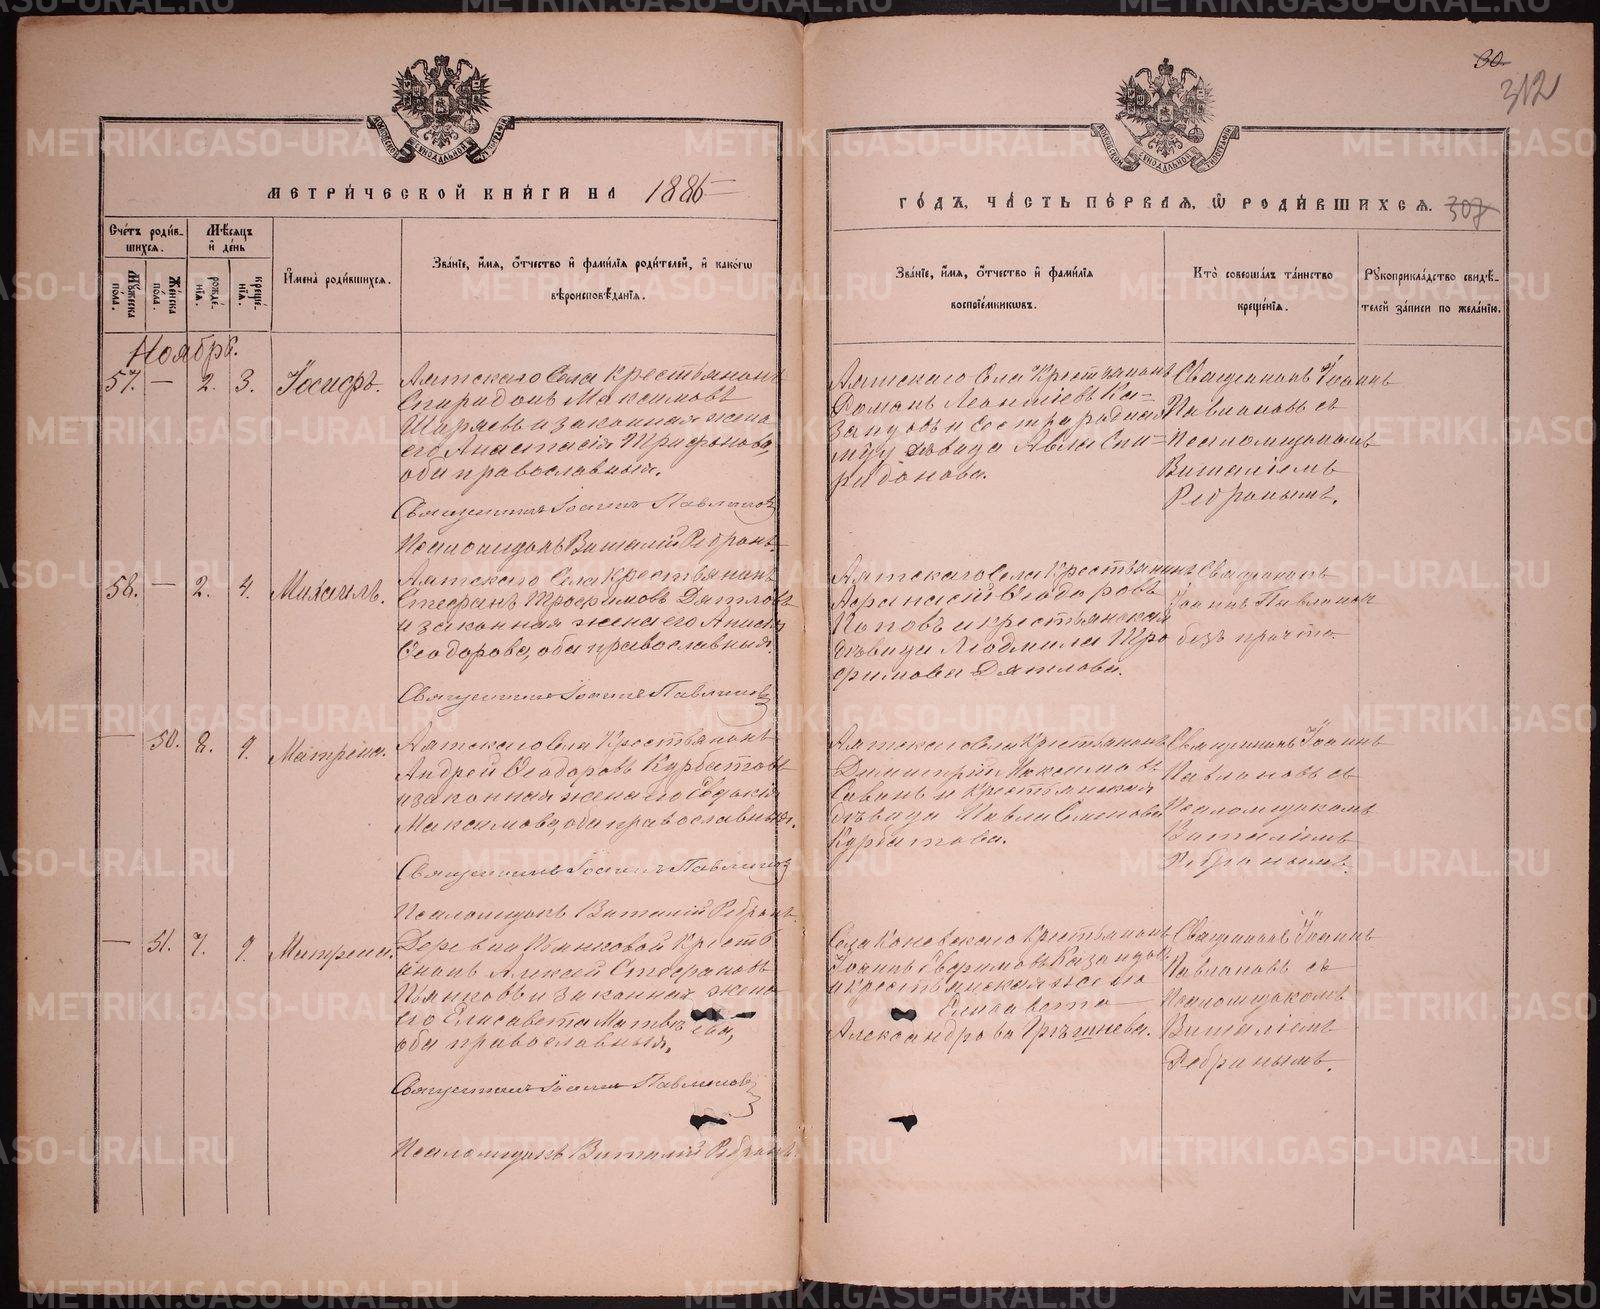 30.
312
МЕТРИЧЕСКОЙ КНИГИ НА 1886
ГОДЪ, ЧАСТЬ ПЕРВАЯ, Ѡ РОДИВШИХСЯ. 307
Счетъ родившихся.
Мужеска пола.
Женска пола.
Мѣсяцъ и день
рожденія.
крещенія.
Имена родившихся.
Званіе, имя, отчество и фамилія родителей, и какогѡ
вѣроисповѣданія.
Званіе, имя, отчество и фамилія
воспріемникѡвъ.
Кто совершалъ таинство
крещенія.
Рукоприкладство свидѣ-
телей записи по желанію.
Ноябрь.
57. — 2. 3. Іосифъ.
Аятскаго Села Крестьянинъ
Спиридонъ Максимовъ
Ширяевъ и законная жена
его Анастасія Трифонова,
оба православныя.
Священникъ Іоаннъ Павлиновъ
Псаломщикъ Виталій Ребринъ.
Аятскаго Села Крестьянинъ
Романъ Леонтіевъ Ка-
занцовъ и сестра родная
дѣвица Спи-
ридонова.
Священникъ Іоаннъ
Павлиновъ съ
Псаломщикомъ
Виталіемъ
Ребринымъ.
58. — 2. 4. Михаилъ.
Аятскаго Села Крестьянинъ
Стефанъ Трофимовъ Дятловъ
и законная жена его Анисія
Ѳеодорова, оба православныя.
Священникъ Іоаннъ Павлиновъ
Аятскаго Села Крестьянинъ
Афанасій Ѳеодоровъ
Поповъ и крестьянская
дѣвица Людмила Тро
фимова Дятлова.
Священникъ
Іоаннъ Павлинов
безъ причта.
— 50. 8. 9. Матрена.
Аятскаго Села Крестьянинъ
Андрей Ѳеодоровъ Курбатовъ
и законная жена его Евдокія
Максимова, оба православныя.
Священникъ Іоаннъ Павлиновъ
Псаломщикъ Виталій Ребринъ.
Аятскаго Села Крестьянинъ
Димитрій Максимовъ
Савинъ и Крестьянская
дѣвица Павла Семенова
Курбатова.
Священникъ Іоаннъ
Павлиновъ съ
Псаломщикомъ
Виталіемъ
Ребринымъ.
— 51. 7. 9. Матрена.
Деревни Пьянковой Кресть
янинъ Алексій Стефановъ
Пьянковъ и законная жена
его Елисавета Матвѣева,
оба православныя.
Священникъ Іоаннъ Павлиновъ
Псаломщикъ Виталій Ребринъ.
Села Коневскаго Крестьянинъ
Іоаннъ Казанцовъ
и крестьянская жена
Елисавета
Александрова Грѣшнева.
Священникъ Іоаннъ
Павлиновъ съ
Псаломщикомъ
Виталіемъ
Ребринымъ.
METRIKI.GASO-URAL.RU